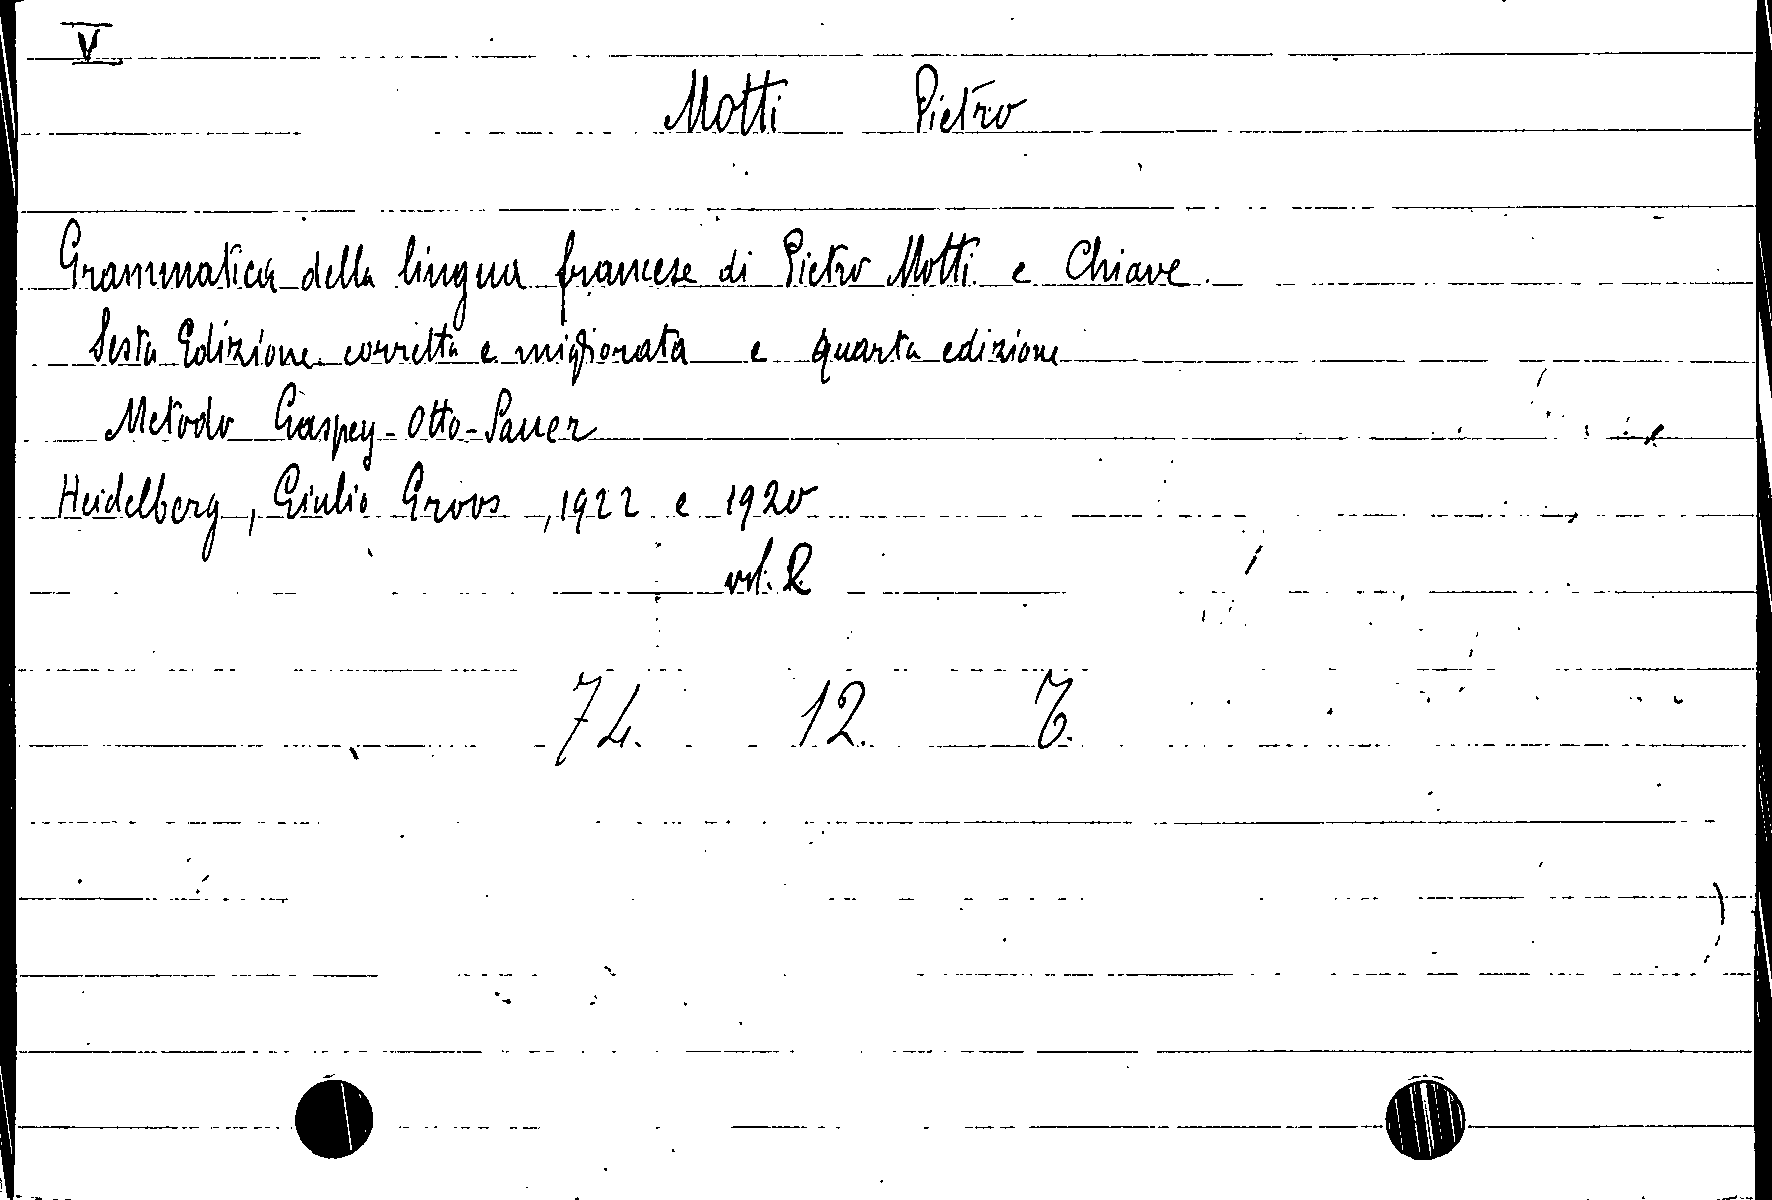 V
Motti Pietro
Grammatica della lingua francese di Pietro Motti e Chiave.
Sesta Edizione corretta e migliorata e quarta edizione
Metodo Gaspey-Otto-Sauer
Heidelberg, Giulio Groos, 1922 e 1920
vol. 2.
74. 12.